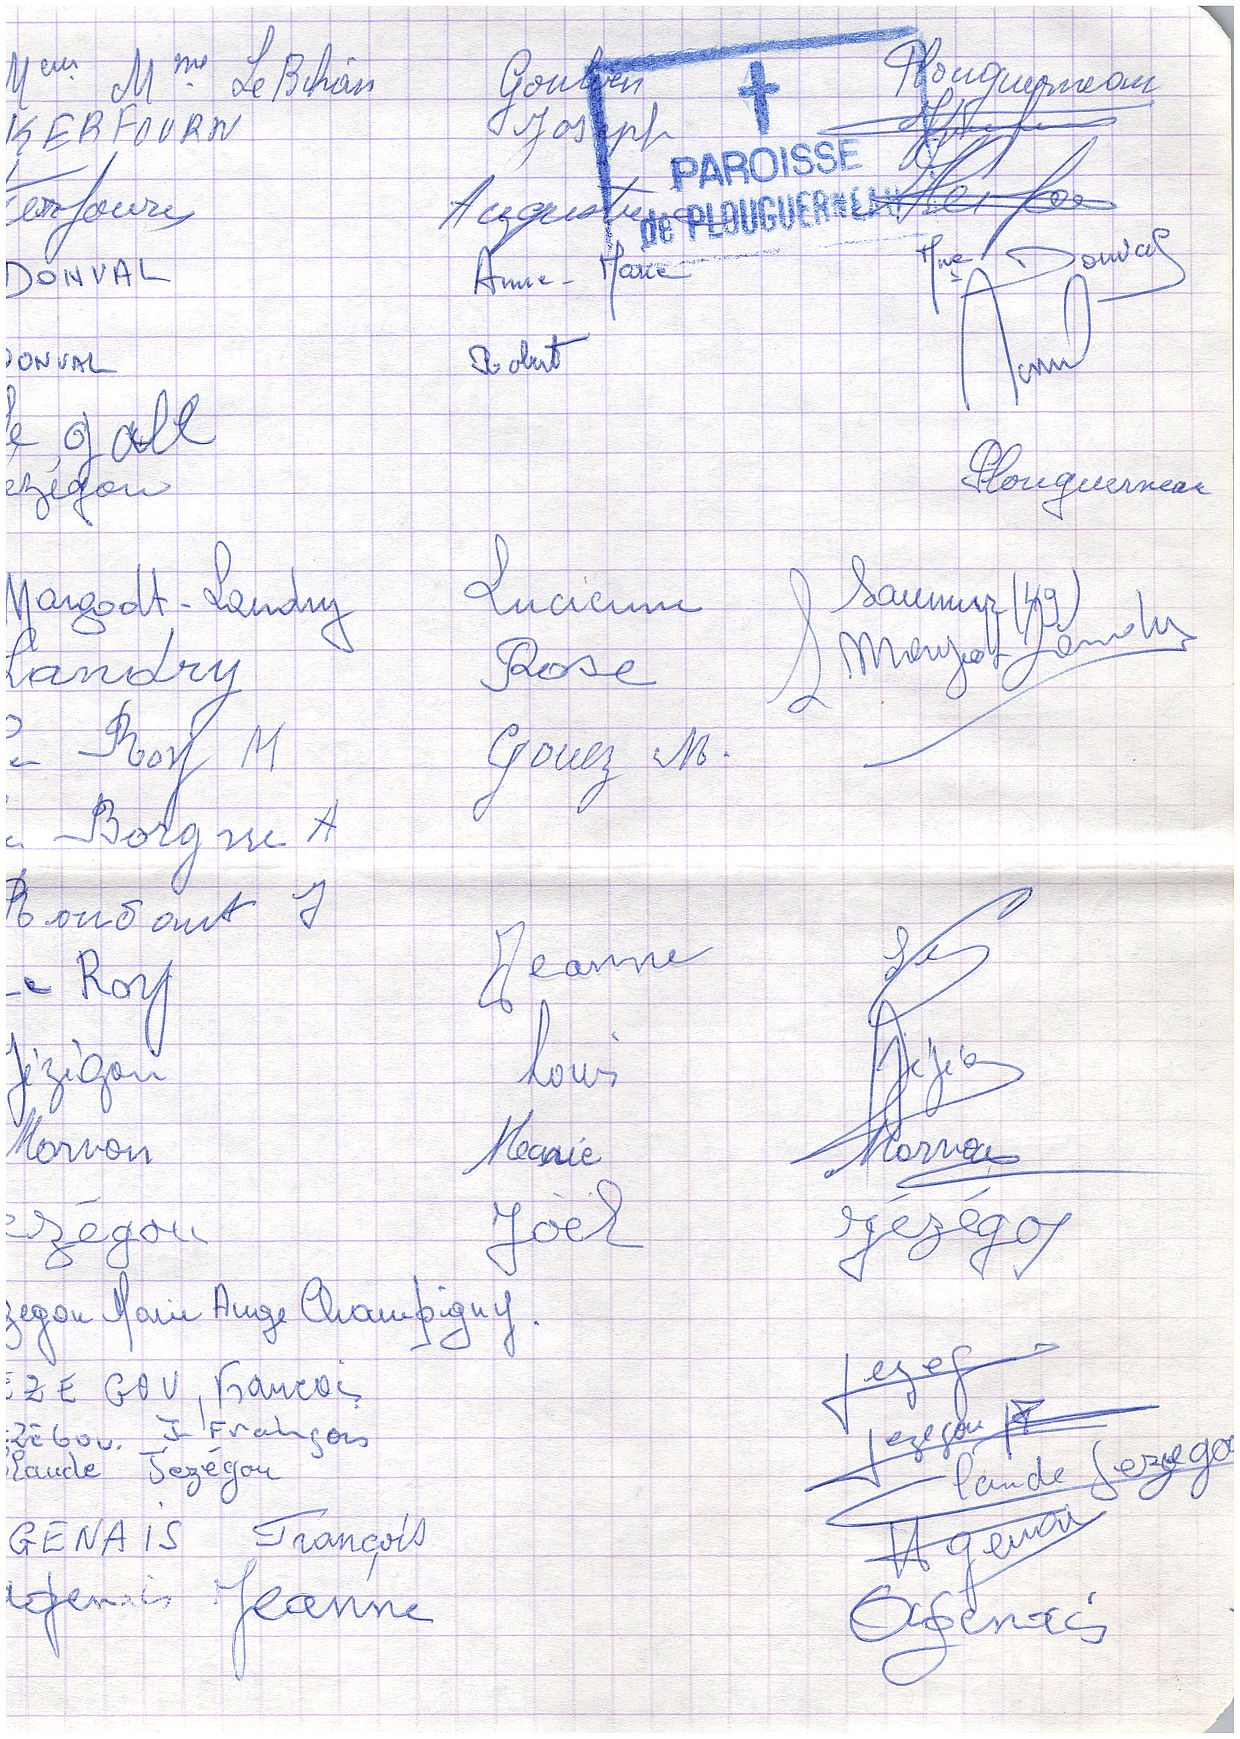 Mme Le Bihan Goulven Plouguerneau
KERFOURN Joseph
PAROISSE
de PLOUGUERNEAU
Augustine
DONVAL Anne-Marie Mme Donval
DONVAL Robert
Le gall
ézégou Plouguerneau
Margodt-Landry Lucienne Saumur (49)
Margodt Landry
Landry Rose
Roy M Gouez M.
Borgne A
Roudaut J
Le Roy Jeanne Le
Jézégou Louis
Morvan Marie Morvan
ézégou Joël Jézégou
zegou Marie Ange Champigny.
EZEGOU François Jezeg
ézégou. J François Jezegou
Claude Jezégou Claude Jezegou
GENAIS François Agenais
Agenais Jeanne Agenais